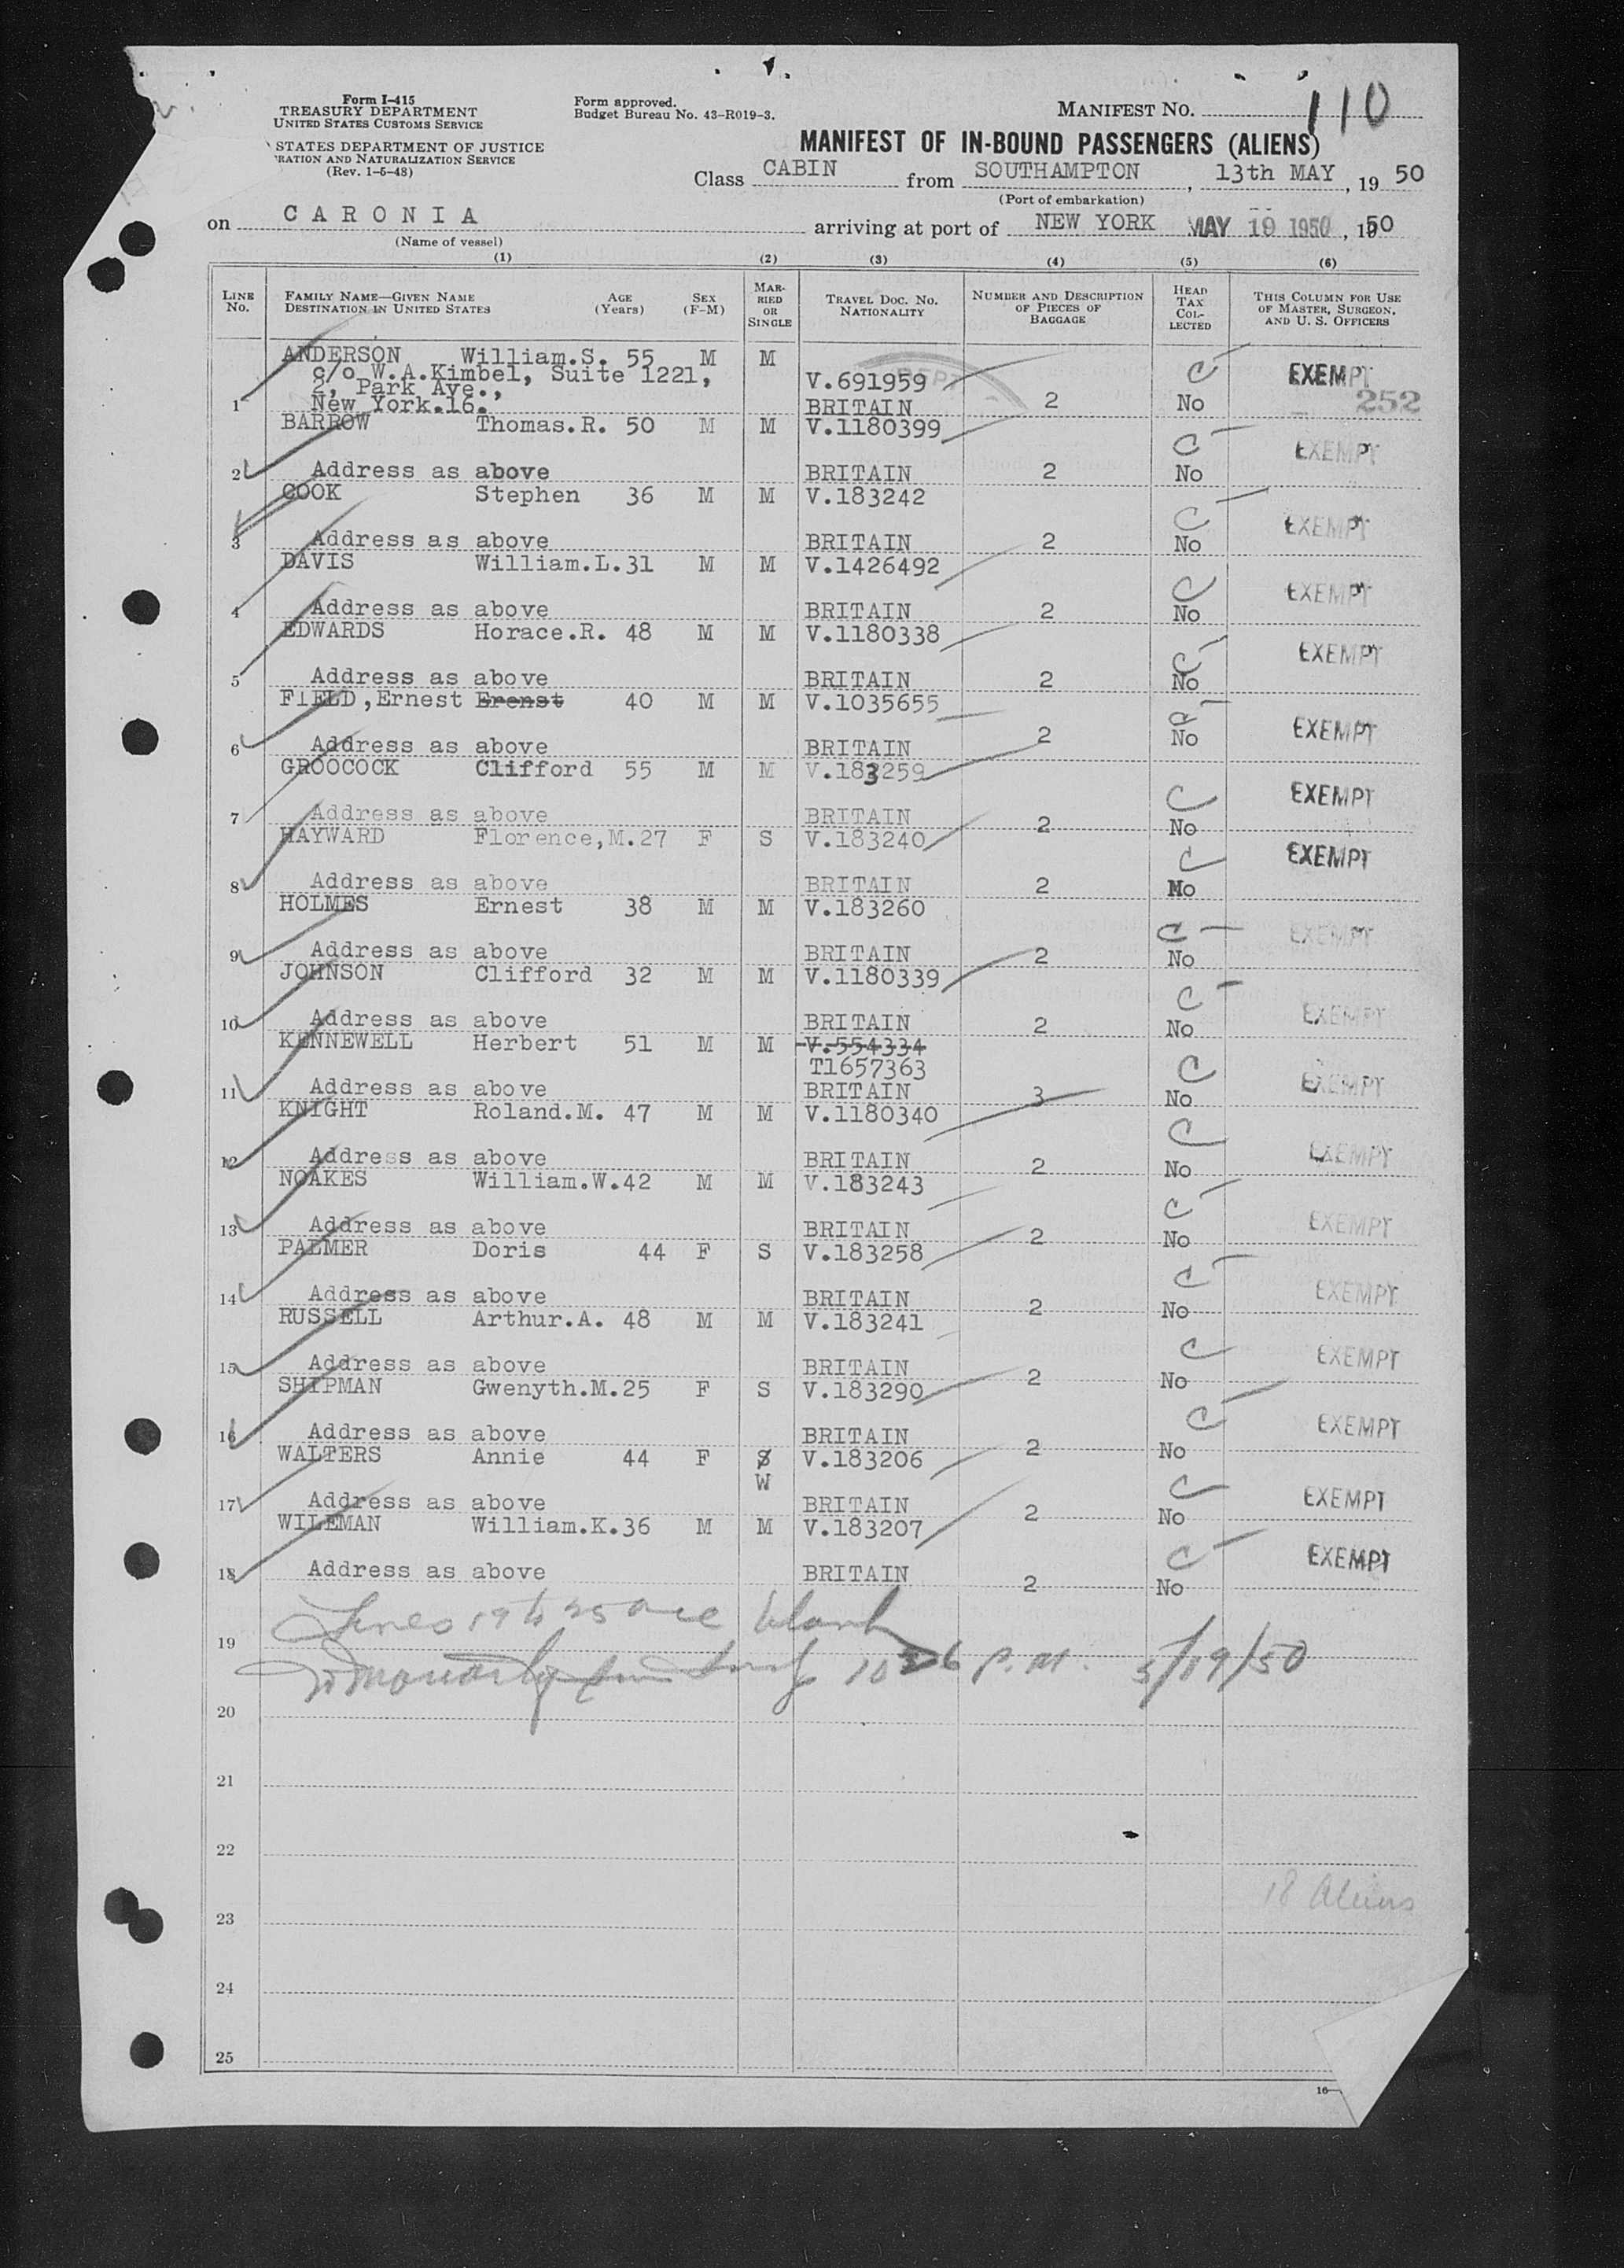 Form I-415
TREASURY DEPARTMENT
UNITED STATES CUSTOMS SERVICE
STATES DEPARTMENT OF JUSTICE
RATION AND NATURALIZATION SERVICE
(Rev. 1-5-48)
Form approved.
Budget Bureau No. 43-R019-3.
MANIFEST NO. 110
MANIFEST OF IN-BOUND PASSENGERS (ALIENS)
Class CABIN from SOUTHAMPTON, 13th MAY, 19 50
(Port of embarkation)
on CARONIA arriving at port of NEW YORK MAY 19 1950, 1950
(Name of vessel)
(1) (2) (3) (4) (5) (6)
LINE No. FAMILY NAME—GIVEN NAME DESTINATION IN UNITED STATES AGE (Years) SEX (F-M) MARRIED OR SINGLE TRAVEL DOC. NO. NATIONALITY NUMBER AND DESCRIPTION OF PIECES OF BAGGAGE HEAD TAX COLLECTED THIS COLUMN FOR USE OF MASTER, SURGEON, AND U. S. OFFICERS
ANDERSON William.S. 55 M M
c/o W.A.Kimbel, Suite 1221, V.691959 C EXEMPT
2, Park Ave.,
1 New York.16. BRITAIN 2 No 252
BARROW Thomas.R. 50 M M V.1180399 C EXEMPT
2 Address as above BRITAIN 2 No
COOK Stephen 36 M M V.183242 C EXEMPT
3 Address as above BRITAIN 2 No
DAVIS William.L.31 M M V.1426492 C EXEMPT
4 Address as above BRITAIN 2 No
EDWARDS Horace.R. 48 M M V.1180338 C EXEMPT
5 Address as above BRITAIN 2 No
FIELD,Ernest Erenst 40 M M V.1035655 C EXEMPT
6 Address as above BRITAIN 2 No
GROOCOCK Clifford 55 M M V.183259 C EXEMPT
7 Address as above BRITAIN 2 No
HAYWARD Florence,M.27 F S V.183240 C EXEMPT
8 Address as above BRITAIN 2 No
HOLMES Ernest 38 M M V.183260 C EXEMPT
9 Address as above BRITAIN 2 No
JOHNSON Clifford 32 M M V.1180339 C EXEMPT
10 Address as above BRITAIN 2 No
KENNEWELL Herbert 51 M M V.554334
T1657363 C EXEMPT
11 Address as above BRITAIN 3 No
KNIGHT Roland.M. 47 M M V.1180340 C EXEMPT
12 Address as above BRITAIN 2 No
NOAKES William.W.42 M M V.183243 C EXEMPT
13 Address as above BRITAIN 2 No
PALMER Doris 44 F S V.183258 C EXEMPT
14 Address as above BRITAIN 2 No
RUSSELL Arthur.A. 48 M M V.183241 C EXEMPT
15 Address as above BRITAIN 2 No
SHIPMAN Gwenyth.M.25 F S V.183290 C EXEMPT
16 Address as above BRITAIN 2 No
WALTERS Annie 44 F S V.183206 C EXEMPT
W
17 Address as above BRITAIN 2 No
WILEMAN William.K.36 M M V.183207 C EXEMPT
18 Address as above BRITAIN 2 No
Lines 19 to 25 are blank
19
10 26 P.M. 5/19/50
20
21
22
18 Aliens
23
24
25
16—